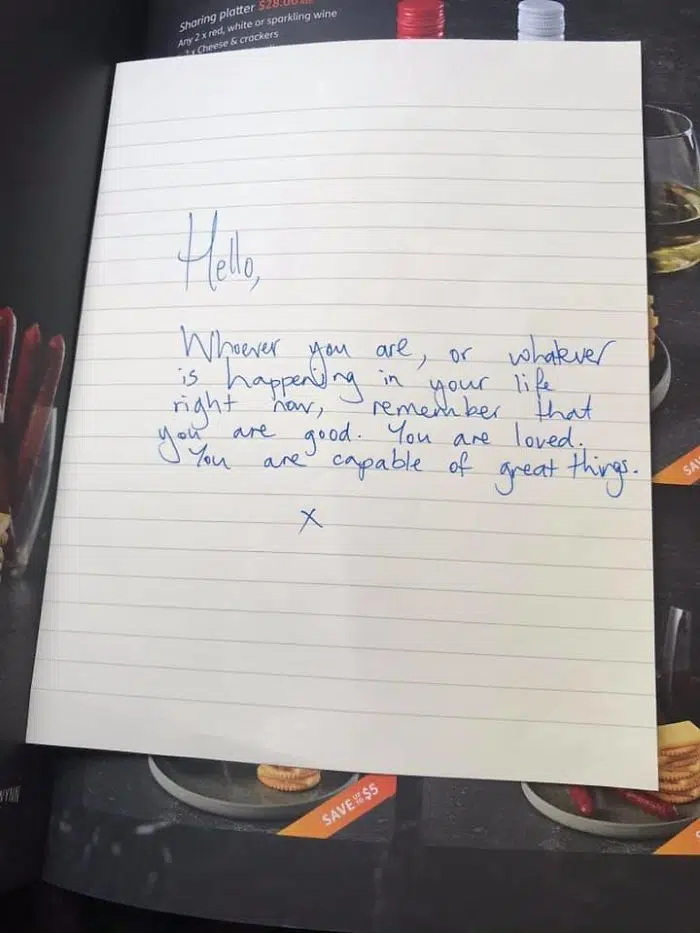 Sharing platter $28.00
Any 2 x red, white or sparkling wine
1 x Cheese & crackers
Hello,
Whoever you are, or whatever
is happening in your life
right now, remember that
you are good. You are loved.
You are capable of great things.
x
SAVE UP TO $5
SA